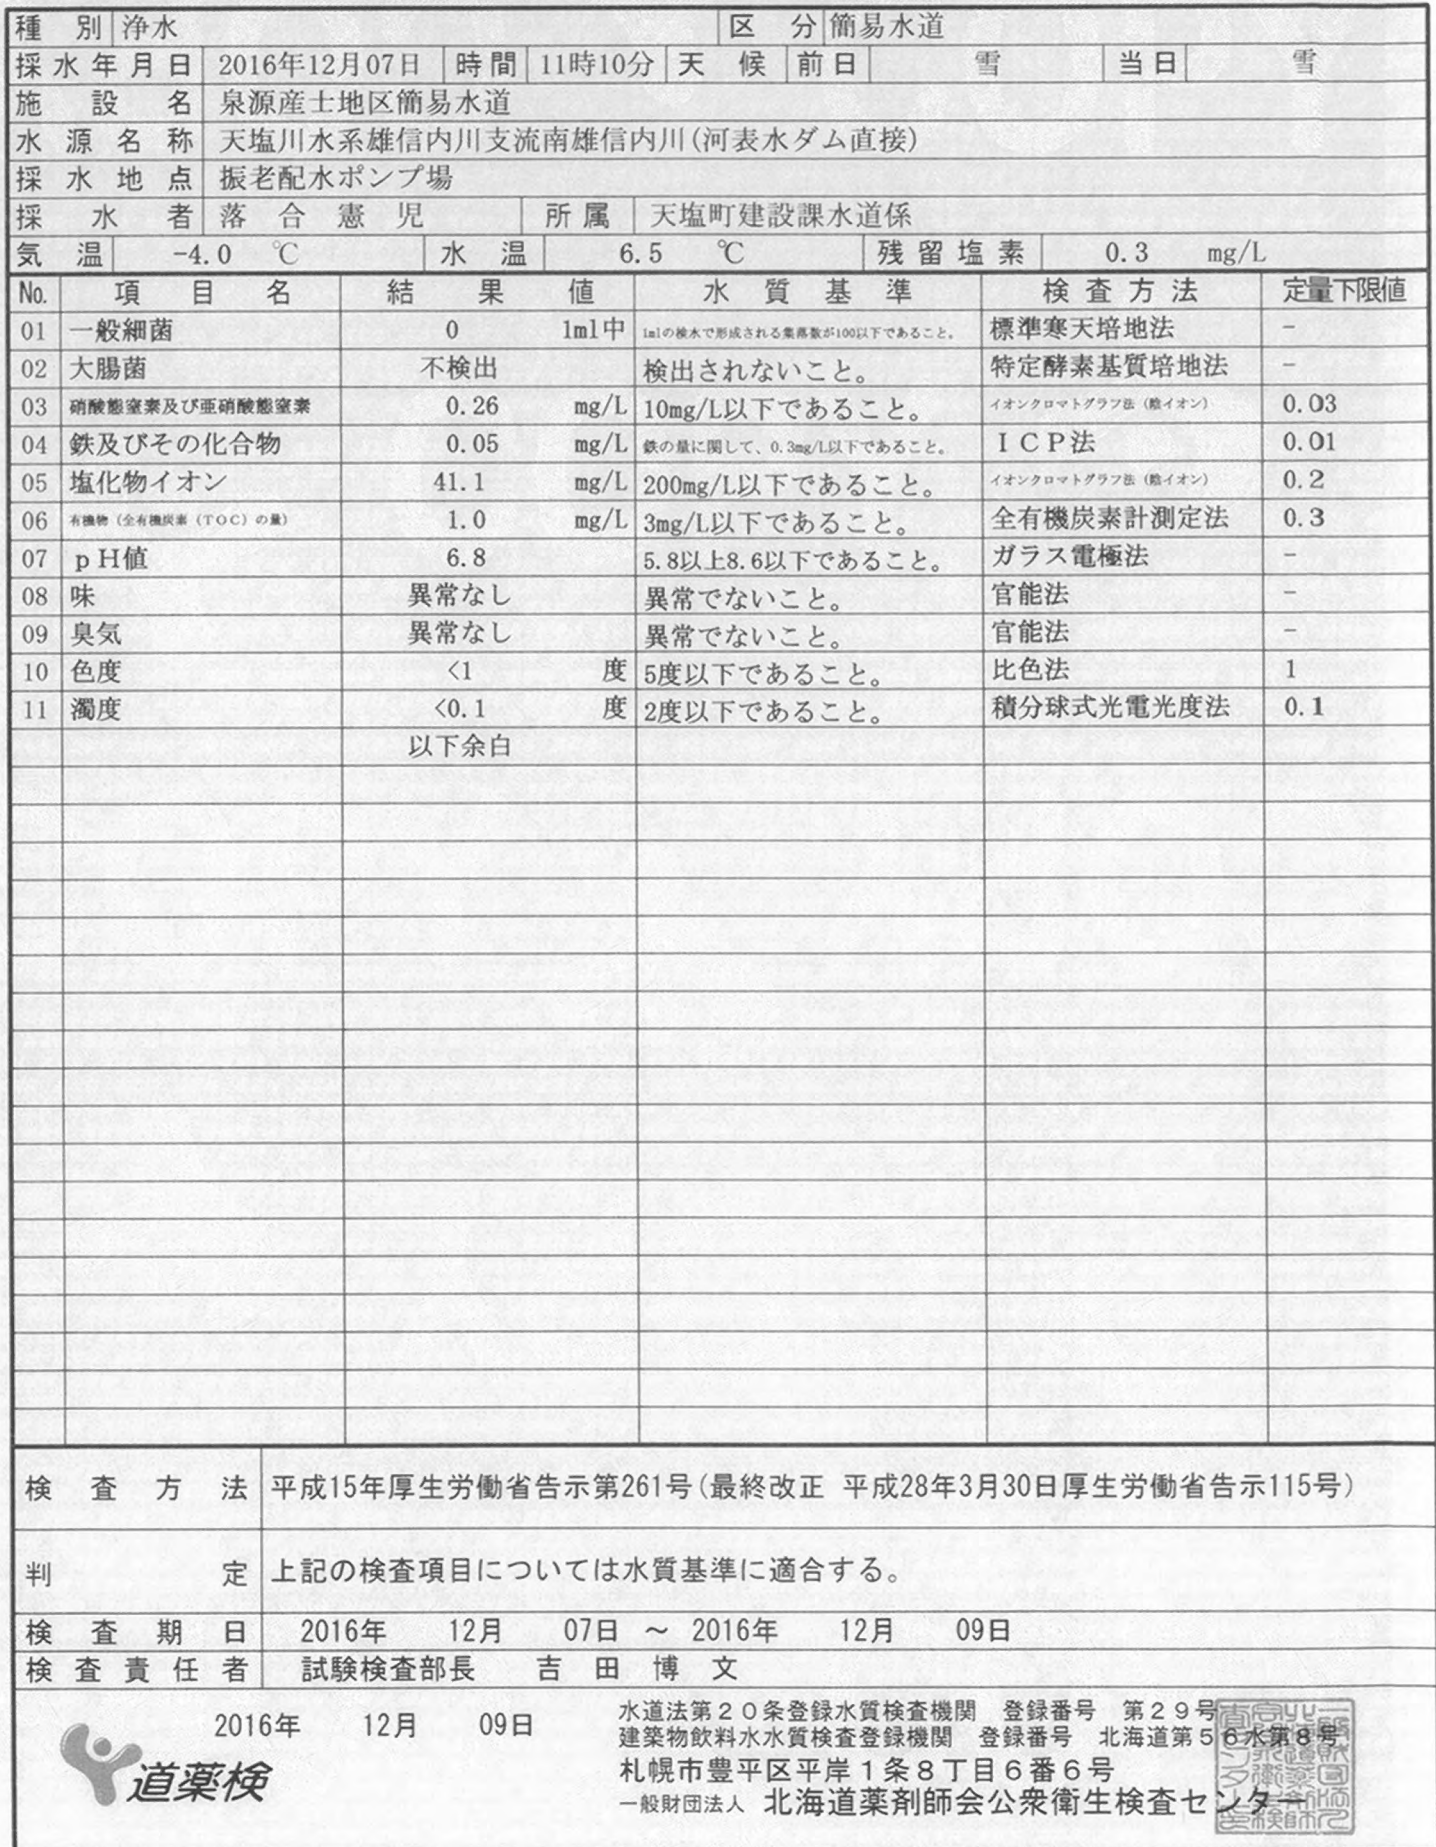 種別 浄水 区分 簡易水道
採水年月日 2016年12月07日 時間 11時10分 天候 前日 雪 当日 雪
施設名 泉源産士地区簡易水道
水源名称 天塩川水系雄信内川支流南雄信内川(河表水ダム直接)
採水地点 振老配水ポンプ場
採水者 落合憲児 所属 天塩町建設課水道係
気温 -4.0 ℃ 水温 6.5 ℃ 残留塩素 0.3 mg/L
No. 項目名 結果値 水質基準 検査方法 定量下限値
01 一般細菌 0 1ml中 1mlの検水で形成される集落数が100以下であること。 標準寒天培地法 -
02 大腸菌 不検出 検出されないこと。 特定酵素基質培地法 -
03 硝酸態窒素及び亜硝酸態窒素 0.26 mg/L 10mg/L以下であること。 イオンクロマトグラフ法（陰イオン） 0.03
04 鉄及びその化合物 0.05 mg/L 鉄の量に関して、0.3mg/L以下であること。 ＩＣＰ法 0.01
05 塩化物イオン 41.1 mg/L 200mg/L以下であること。 イオンクロマトグラフ法（陰イオン） 0.2
06 有機物（全有機炭素（TOC）の量） 1.0 mg/L 3mg/L以下であること。 全有機炭素計測定法 0.3
07 ｐH値 6.8 5.8以上8.6以下であること。 ガラス電極法 -
08 味 異常なし 異常でないこと。 官能法 -
09 臭気 異常なし 異常でないこと。 官能法 -
10 色度 <1 度 5度以下であること。 比色法 1
11 濁度 <0.1 度 2度以下であること。 積分球式光電光度法 0.1
以下余白
検査方法 平成15年厚生労働省告示第261号(最終改正 平成28年3月30日厚生労働省告示115号)
判定 上記の検査項目については水質基準に適合する。
検査期日 2016年 12月 07日 ～ 2016年 12月 09日
検査責任者 試験検査部長 吉田博文
2016年 12月 09日
道薬検
水道法第２０条登録水質検査機関 登録番号 第２９号
建築物飲料水水質検査登録機関 登録番号 北海道第５６水第８号
札幌市豊平区平岸１条８丁目６番６号
一般財団法人 北海道薬剤師会公衆衛生検査センター